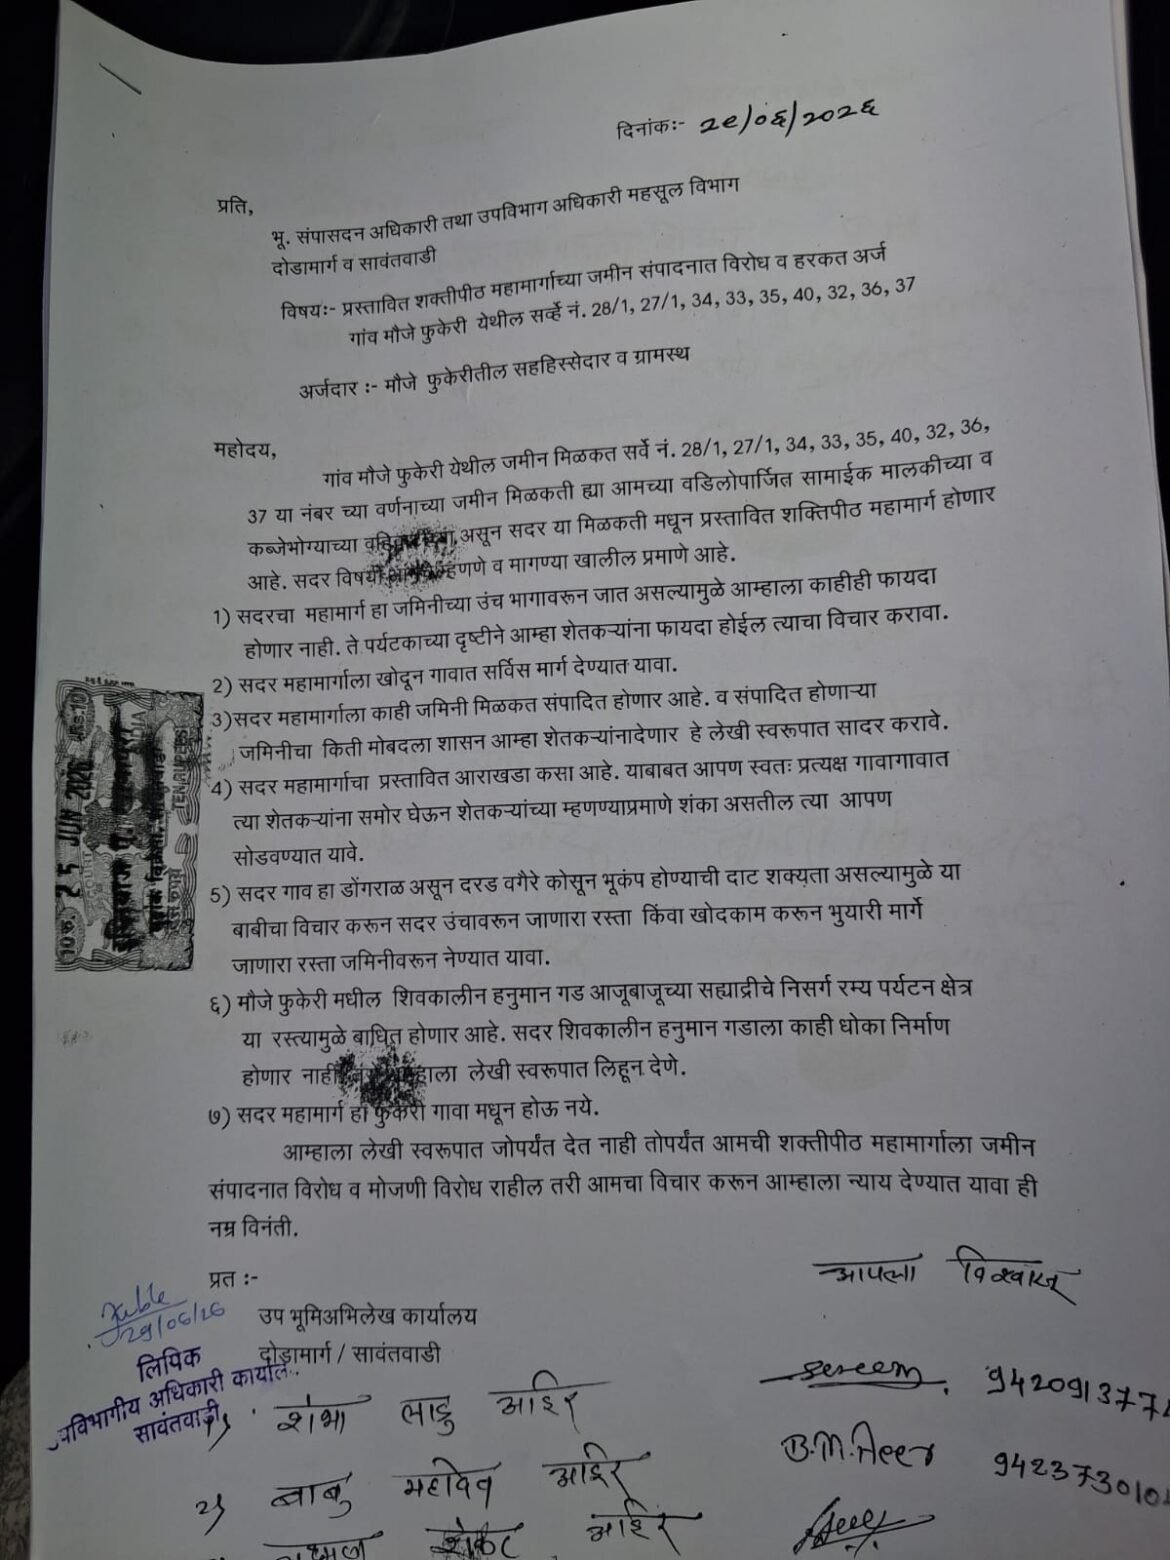 दिनांकः- २९/०६/२०२६
प्रति,
भू. संपासदन अधिकारी तथा उपविभाग अधिकारी महसूल विभाग
दोडामार्ग व सावंतवाडी
विषयः- प्रस्तावित शक्तीपीठ महामार्गाच्या जमीन संपादनात विरोध व हरकत अर्ज
गांव मौजे फुकेरी येथील सर्व्हे नं. 28/1, 27/1, 34, 33, 35, 40, 32, 36, 37
अर्जदार :- मौजे फुकेरीतील सहहिस्सेदार व ग्रामस्थ
महोदय,
गांव मौजे फुकेरी येथील जमीन मिळकत सर्वे नं. 28/1, 27/1, 34, 33, 35, 40, 32, 36,
37 या नंबर च्या वर्णनाच्या जमीन मिळकती ह्या आमच्या वडिलोपार्जित सामाईक मालकीच्या व
कब्जेभोग्याच्या असून सदर या मिळकती मधून प्रस्तावित शक्तिपीठ महामार्ग होणार
आहे. सदर विषयी म्हणणे व मागण्या खालील प्रमाणे आहे.
1) सदरचा महामार्ग हा जमिनीच्या उंच भागावरून जात असल्यामुळे आम्हाला काहीही फायदा
होणार नाही. ते पर्यटकाच्या दृष्टीने आम्हा शेतकऱ्यांना फायदा होईल त्याचा विचार करावा.
2) सदर महामार्गाला खोदून गावात सर्विस मार्ग देण्यात यावा.
3)सदर महामार्गाला काही जमिनी मिळकत संपादित होणार आहे. व संपादित होणाऱ्या
जमिनीचा किती मोबदला शासन आम्हा शेतकऱ्यांनादेणार हे लेखी स्वरूपात सादर करावे.
4) सदर महामार्गाचा प्रस्तावित आराखडा कसा आहे. याबाबत आपण स्वतः प्रत्यक्ष गावागावात
त्या शेतकऱ्यांना समोर घेऊन शेतकऱ्यांच्या म्हणण्याप्रमाणे शंका असतील त्या आपण
सोडवण्यात यावे.
5) सदर गाव हा डोंगराळ असून दरड वगैरे कोसून भूकंप होण्याची दाट शक्यता असल्यामुळे या
बाबीचा विचार करून सदर उंचावरून जाणारा रस्ता किंवा खोदकाम करून भुयारी मार्गे
जाणारा रस्ता जमिनीवरून नेण्यात यावा.
६) मौजे फुकेरी मधील शिवकालीन हनुमान गड आजूबाजूच्या सह्याद्रीचे निसर्ग रम्य पर्यटन क्षेत्र
या रस्त्यामुळे बाधित होणार आहे. सदर शिवकालीन हनुमान गडाला काही धोका निर्माण
होणार नाही लेखी स्वरूपात लिहून देणे.
७) सदर महामार्ग हा फुकेरी गावा मधून होऊ नये.
आम्हाला लेखी स्वरूपात जोपर्यंत देत नाही तोपर्यंत आमची शक्तीपीठ महामार्गाला जमीन
संपादनात विरोध व मोजणी विरोध राहील तरी आमचा विचार करून आम्हाला न्याय देण्यात यावा ही
नम्र विनंती.
आपला विश्वासू
प्रत :-
उप भूमिअभिलेख कार्यालय
दोडामार्ग / सावंतवाडी
29/06/26
लिपिक
उपविभागीय अधिकारी कार्याल
सावंतवाडी
१) शंभा लाडु आईर 942091377
२) बाबु महादेव आईर B.M.Aeer 942373010
आईर
10 रु. 25 JUN 2026 Rs.10
INDIA
COURT
TEN RUPEES
दस रुपये